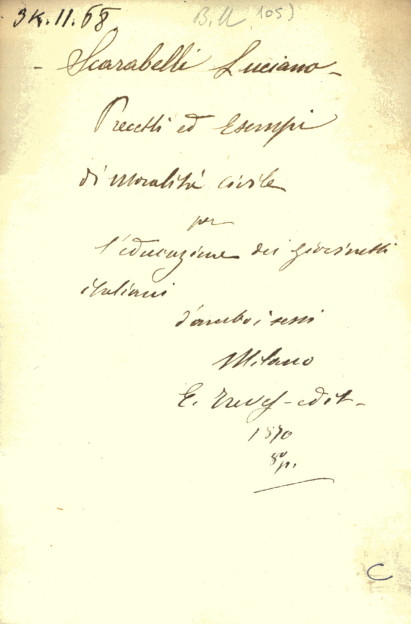 3K.II.68
B.U. 105)
- Scarabelli Luciano -
Precetti ed Esempi
di Moralità civile
per
l'educazione dei giovinetti
italiani
d'ambo i sessi
Milano
E. Treves - edit -
1870
8º p.
C